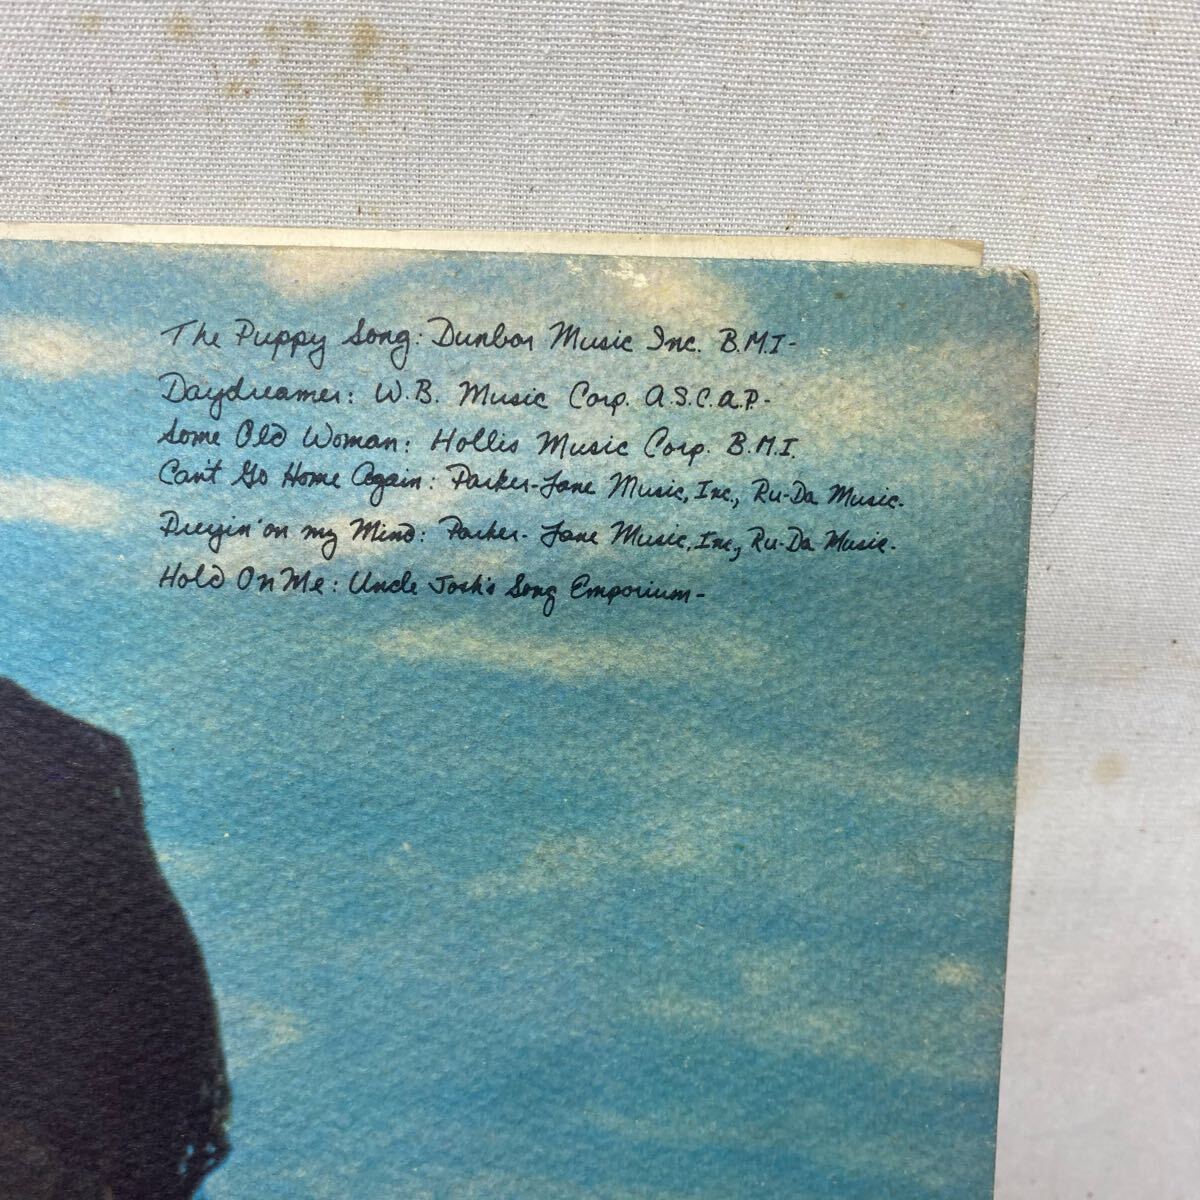 The Puppy Song: Dunbar Music Inc. B.M.I-
Daydreamer: W.B. Music Corp. A.S.C.A.P.-
Some Old Woman: Hollis Music Corp. B.M.I.
Can't Go Home Again: Parker-Lane Music, Inc., Ru-Da Music.
Preyin' on my Mind: Parker-Lane Music, Inc., Ru-Da Music-
Hold On Me: Uncle Josh's Song Emporium-